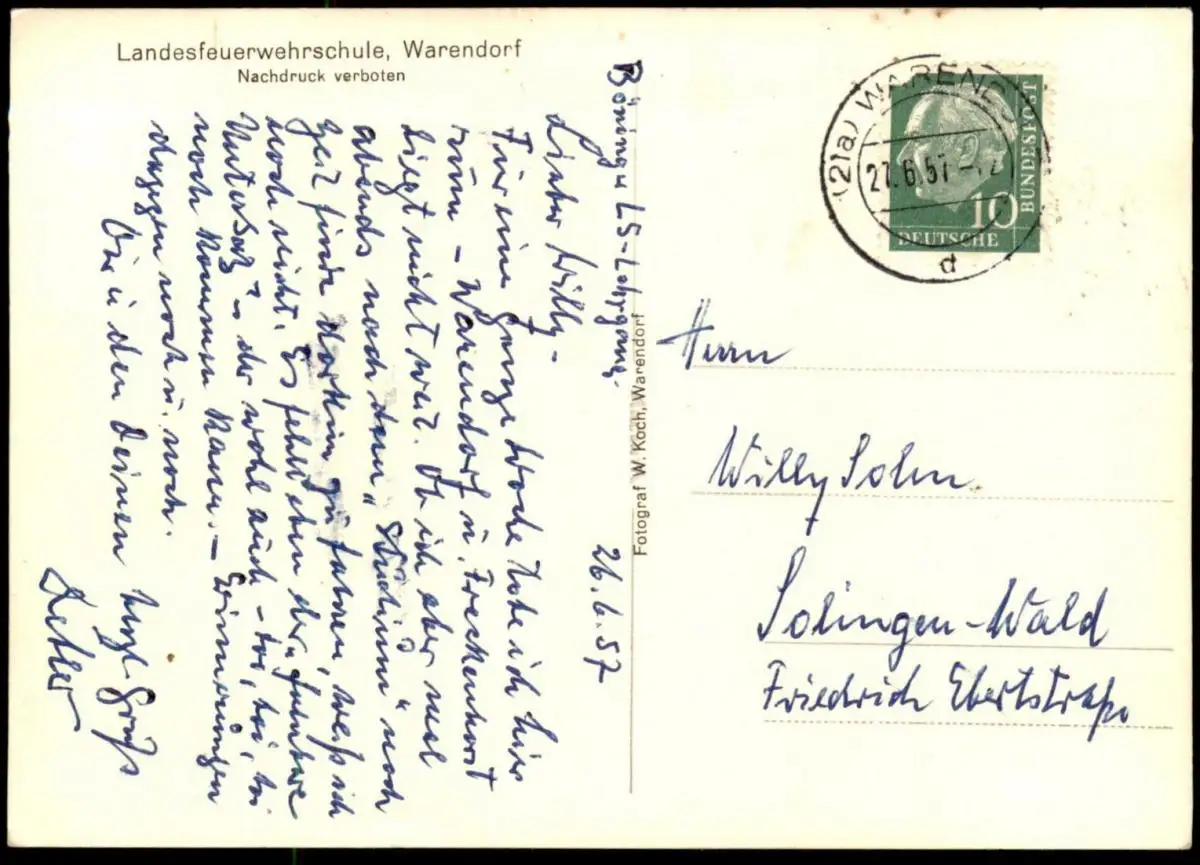 Landesfeuerwehrschule, Warendorf
Nachdruck verboten
LS-Lehrgang.
26.6.57
Lieber Willy -
Für eine ganze Woche tobe ich hier
rum - Warendorf u. Freckenhorst
liegt nicht weit. Ob ich aber mal
abends nach dem „Studium" noch
Zeit finde dorthin zu fahren, weß ich
noch nicht. Es fehlt eben der „fahrbare
Untersatz" - der wohl auch -
noch kommen kann. - Erinnerungen
dagegen noch u. noch.
Dir u. den Deinen herzl. Grüße
Detlev
Fotograf W. Koch, Warendorf
(21a) WARENDORF
27.6.57
d
10
DEUTSCHE
BUNDESPOST
Herrn
Willy Sohn
Solingen-Wald
Friedrich Ebertstraße